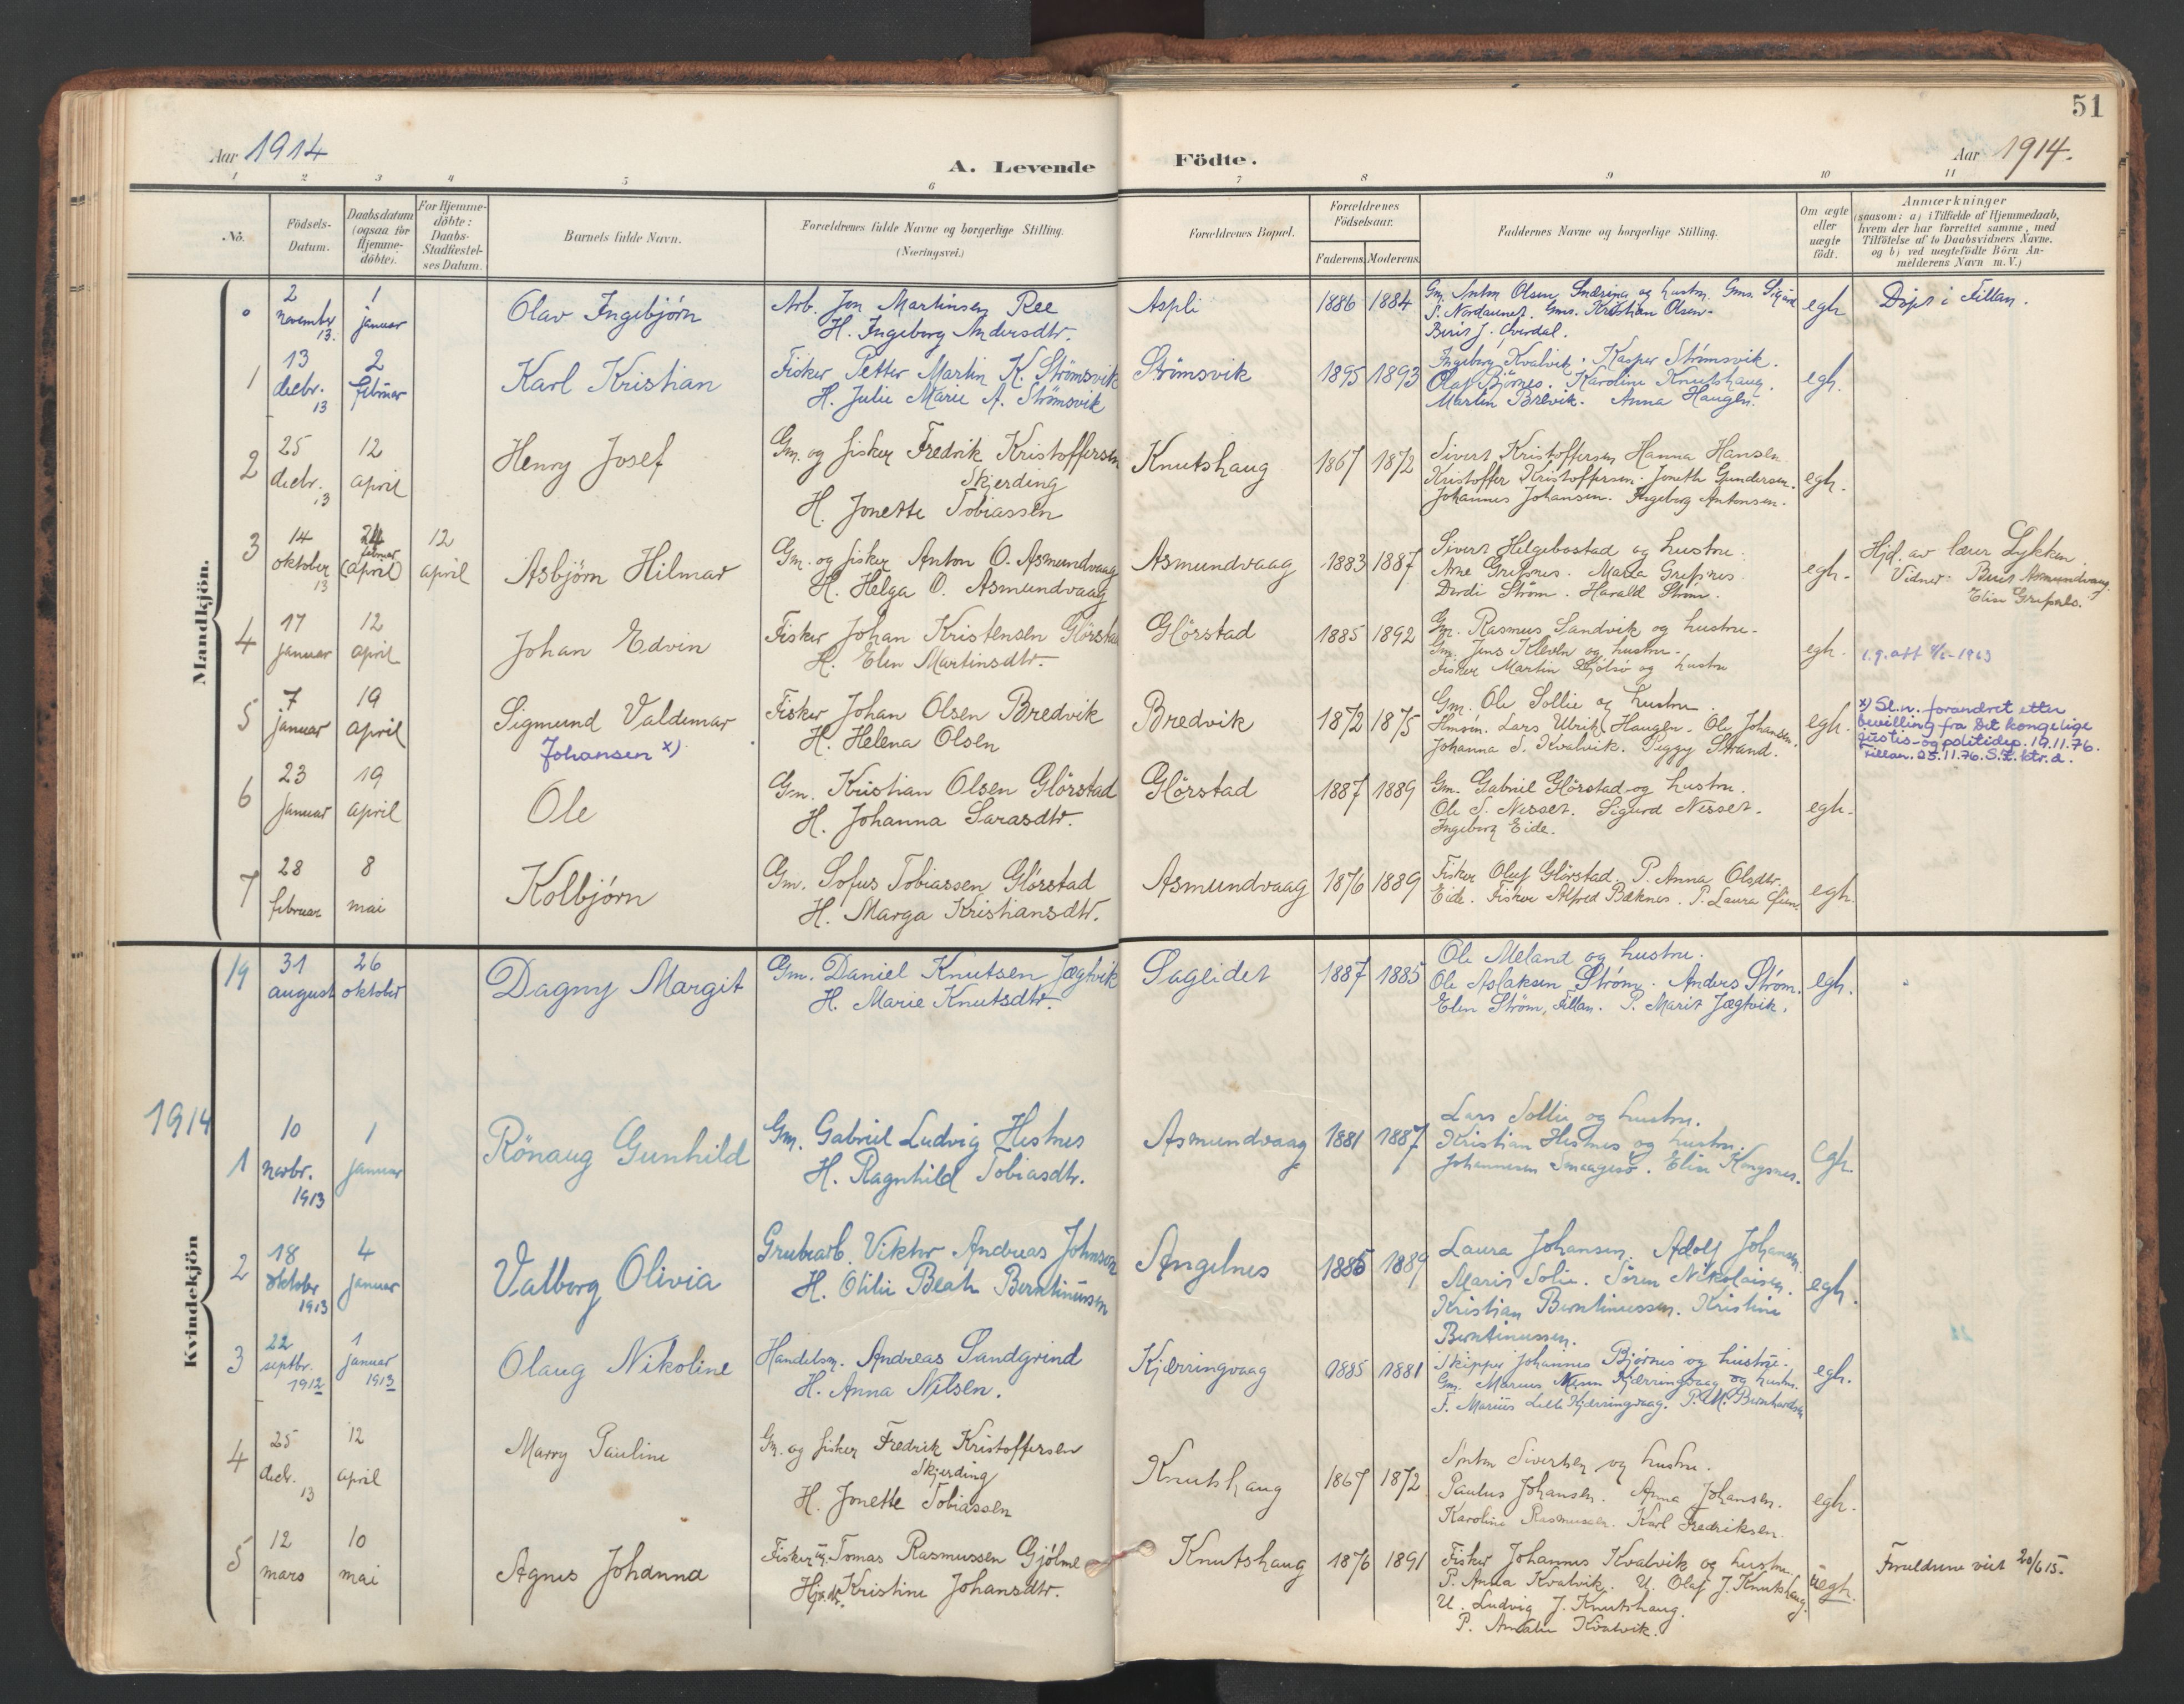 51
Aar 1914
A. Levende
Födte.
Aar 1914.
1 2 3 4 5 6 7 8 9 10 11
No.
Födsels-
Datum.
Daabsdatum
(ogsaa for
Hjemme-
döbte).
For Hjemme-
döbte:
Daabs-
Stadfæstel-
ses Datum.
Barnets fulde Navn.
Forældrenes fulde Navne og borgerlige Stilling.
(Næringsvei.)
Forældrenes Bopæl.
Forældrenes
Födselsaar.
Faderens. Moderens.
Faddernes Navne og borgerlige Stilling.
Om ægte
eller
uægte
født.
Anmærkninger
(saasom: a) i Tilfælde af Hjemmedaab,
hvem der har forrettet samme, med
Tilföielse af to Daabsvidners Navne.
og b) ved uægtefödte Börn An-
melderens Navn m. V.)
Mandkjön.
0
2
novembr
13.
1
januar
Olav Ingebjörn
Arb. Jon Martinsen Ree
H. Ingeborg Andersdtr.
Aspli
1886 1884
Gm. Anton Olsen og hustru. Gms. Sigurd
P. Nordaunet. Gms. Kristian Olsen.
Berit J. Overdal.
egh
Döpt i Fillan.
1
13
decbr.
13
2
februar
Karl Kristian
Fisker Petter Martin K. Strömsvik
H. Julie Marie A. Strömsvik
Strömsvik
1895 1893
Ingeborg Kvalvik. Kasper Strömsvik.
Olaf Björnes. Karoline Knutshaug.
Martin Brevik. Anna Haugen.
egh.
2
25
decbr.
13
12
april
Henry Josef
Gm. og fisker Fredrik Kristoffersen
Skjerding
H. Jonette Tobiassen
Knutshaug
1867 1872
Sivert Kristoffersen Hanna Hansen
Kristoffer Kristoffersen. Jonette Gundersen.
Johannes Johansen. Ingeborg Antonsen.
egh.
3
14
oktober
13
24
februar
(april)
12
april
Asbjörn Hilmar
Gm. og fisker Anton O. Asmundvaag
H. Helga O. Asmundvaag
Asmundvaag
1883 1887
Sivert Helgebostad og hustru.
Arne Grefsnes. Marta Grefsnes.
Dordi Ström. Harald Ström.
egh.
Hjd. av lærer Lykken
Vidner: Berit Asmundvaag
4
17
januar
12
april
Johan Edvin
Fisker Johan Kristensen Glörstad
H. Elen Martinsdtr.
Glörstad
1885 1892
Gm. Rasmus Sandvik og hustru.
Gm. Jens Kleven og hustru.
Fisker Martin Gjölsö og hustru
egh.
l.g. att 1963
5
7
januar
19
april
Sigmund Valdemar
Johansen x)
Fisker Johan Olsen Bredvik
H. Helena Olsen
Bredvik
1872 1875
Gm. Ole Sollie og hustru.
Lars Ulrik Haugen. Ole Johansen.
Johanna S. Kvalvik. Peggy Strand.
egh.
x) Sl.n. forandret etter
bevilling fra Det kongelige
justis- og politidep. 19.11.76.
Fillan. 25.11.76. S.Z. ktr.a.
6
23
januar
19
april
Ole
Gm. Kristian Olsen Glörstad
H. Johanna Larasdtr.
Glörstad
1887 1889
Gm. Gabriel Glörstad og hustru.
Ole S. Nesset. Sigurd Nesset.
Ingeborg Eide.
egh.
7
28
februar
8
mai
Kolbjörn
Gm. Sofus Tobiassen Glörstad
H. Marga Kristiansdtr.
Asmundvaag
1876 1889
Fisker Oluf Glörstad. P. Anna Olsdtr.
Eide. Fisker Alfred Bæknes. P. Laura
egh.
Kvindekjön
19
31
august
26
oktober
Dagny Margit
Gm. Daniel Knutsen Jægtvik
H. Marie Knutsdtr.
Sageidet
1887 1885
Ole Meland og hustru.
Ole Aslaksen Ström. Anders Ström.
Elen Ström, Fillan. P. Marit Jægtvik.
egh.
1914
1
10
novbr.
1913
1
januar
Rönaug Gunhild
Gm. Gabriel Ludvig Hestnes
H. Ragnhild Tobiasdtr.
Asmundvaag
1881 1887
Lars Sollie og hustru.
Kristian Hestnes og hustru.
Johannesen Smaagesö. Elise Kongsnes.
egh.
2
18
oktober
1913
4
januar
Valborg Olivia
Grubearb. Viktor Andreas Johnsen
H. Otilie Beate Berntinussen
Angelnes
1885 1889
Laura Johansen. Adolf Johansen.
Marit Solie. Sören Nikolaisen.
Kristian Berntinussen. Kristine
Berntinussen.
egh.
3
22
septbr.
1912
1
januar
1913
Olaug Nikoline
Handelsm. Andreas Sandgrind
H. Anna Nilsen.
Kjærringvaag
1885 1881
Skipper Johannes Björnes og hustru.
Gm. Marius Kjærringvaag og hustru.
F. Marius Kjærringvaag. P. M. Bernhardsen
egh.
4
25
decbr.
13
12
april
Marry Pauline
Gm. og fisker Fredrik Kristoffersen
Skjerding
H. Jonette Tobiassen
Knutshaug
1867 1872
Anton Sivertsen og hustru.
Paulus Johansen. Anna Johansen.
Karoline Rasmussen. Karl Fredriksen.
egh.
5
12
mars
10
mai
Agnes Johanna
Fisker u. Tomas Rasmussen Gjölme
Kristine Johansdtr.
Knutshaug
1876 1891
Fisker Johannes Kvalvik og hustru.
P. Anna Kvalvik. U. Olaf J. Knutshaug.
U. Ludvig J. Knutshaug.
P. Amalie Kvalvik.
uegh.
Foreldrene viet 20/6 15.